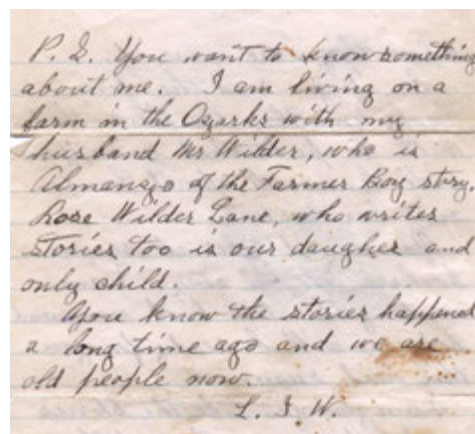 P.S. You want to know something
about me. I am living on a
farm in the Ozarks with my
husband Mr Wilder, who is
Almanzo of the Farmer Boy story.
Rose Wilder Lane, who writes
stories too is our daugher and
only child.
You know the stories happened
a long time ago and we are
old people now.
L. I W.